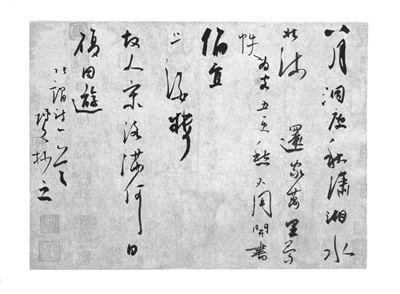 八月洞庭秋瀟湘水
北流還家萬里夢
為客五更愁不用開書
帙
偏宜
上酒樓
故人京洛滿何日
復同遊